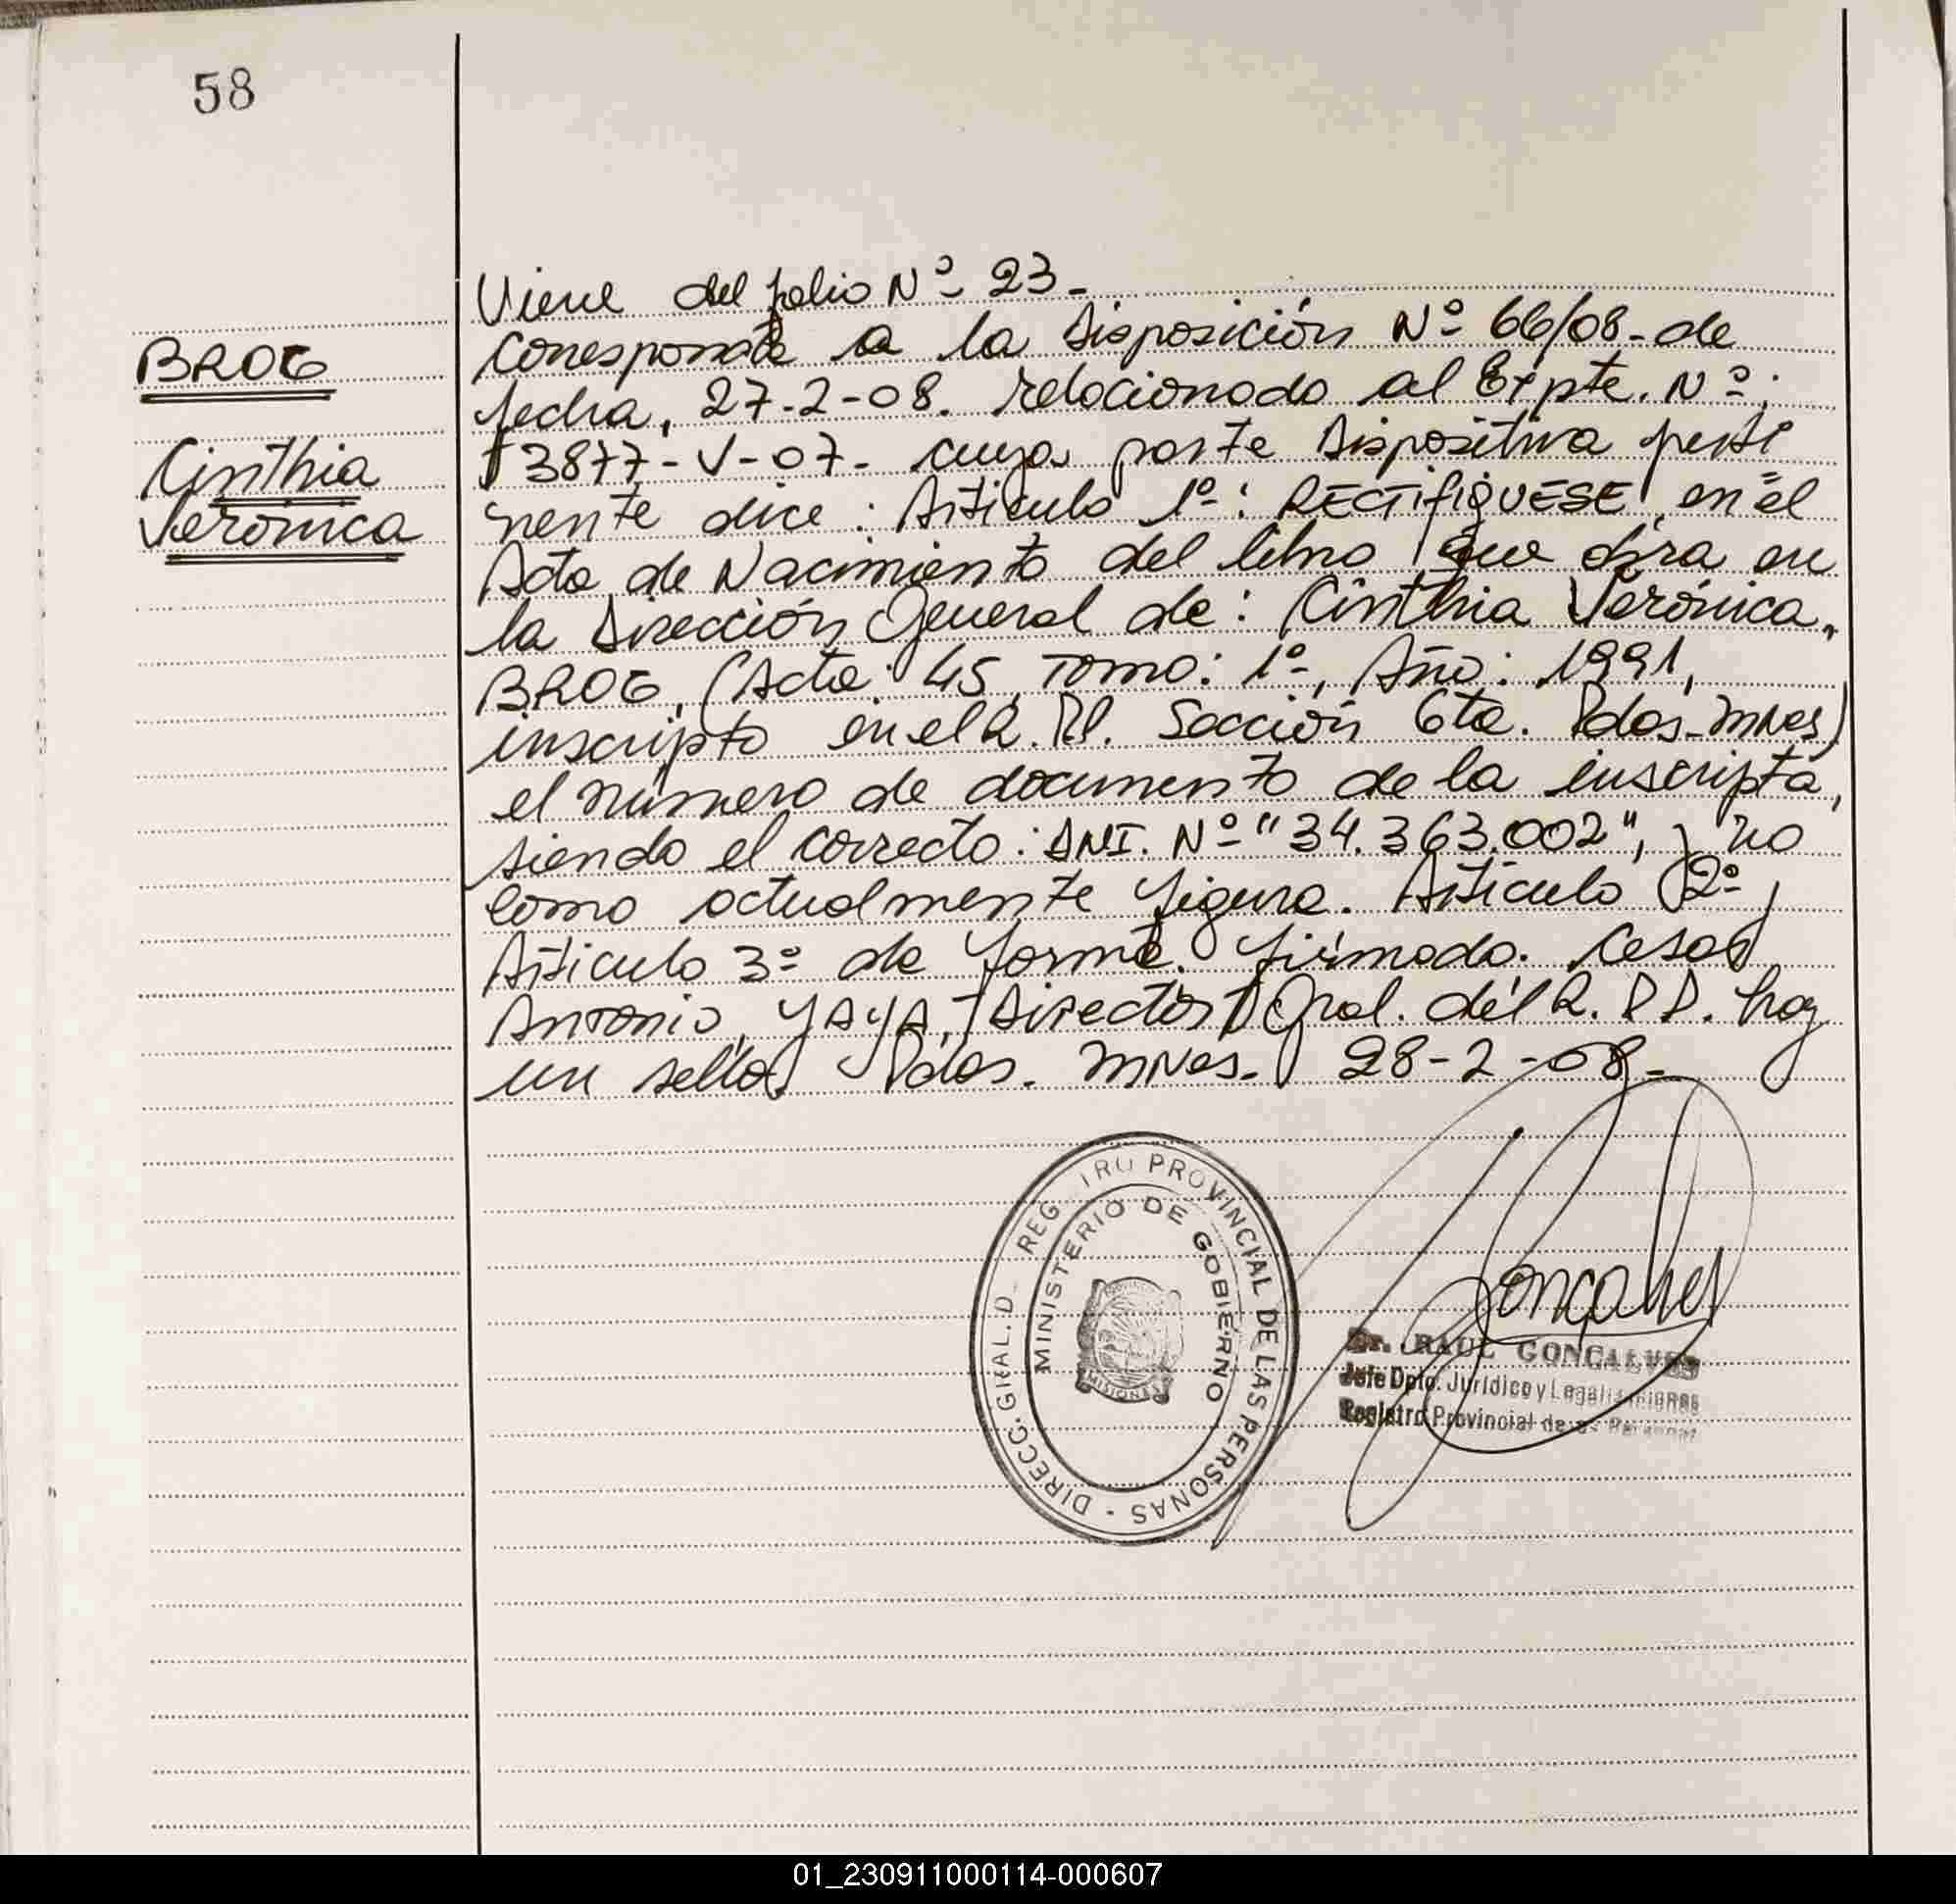 58
BROG
Cinthia
Verónica
Viene del folio Nº 23-
Corresponde a la Disposición Nº 66/08- de
fecha, 27-2-08. relacionado al Expte. Nº:
3877-V-07- cuya parte Dispositiva perti
nente dice: Artículo 1º: RECTIFÍQUESE, en el
Acta de Nacimiento del libro que obra en
la Dirección General de: Cinthia Verónica,
BROG, (Acta: 45, Tomo: 1º, Año: 1991,
inscripto en el R.P.P. Sección 6ta. Pdas-Mnes)
el número de documento de la inscripta,
siendo el correcto: DNI. Nº "34.363.002", y no
como actualmente figura. Artículo 2º y
Artículo 3º de forma. firmado. Cesar
Antonio, YAYA, Director Gral. del R.P.P. hay
un sello. Pdas. Mnes. 28-2-08-
DIRECC. GRAL. D. REG. TRO PROVINCIAL DE LAS PERSONAS -
MINISTERIO DE GOBIERNO
MISIONES
Goncalves
Dr. RAUL GONCALVES
Jefe Dpto. Jurídico y Legalizaciones
Registro Provincial de
01_230911000114-000607